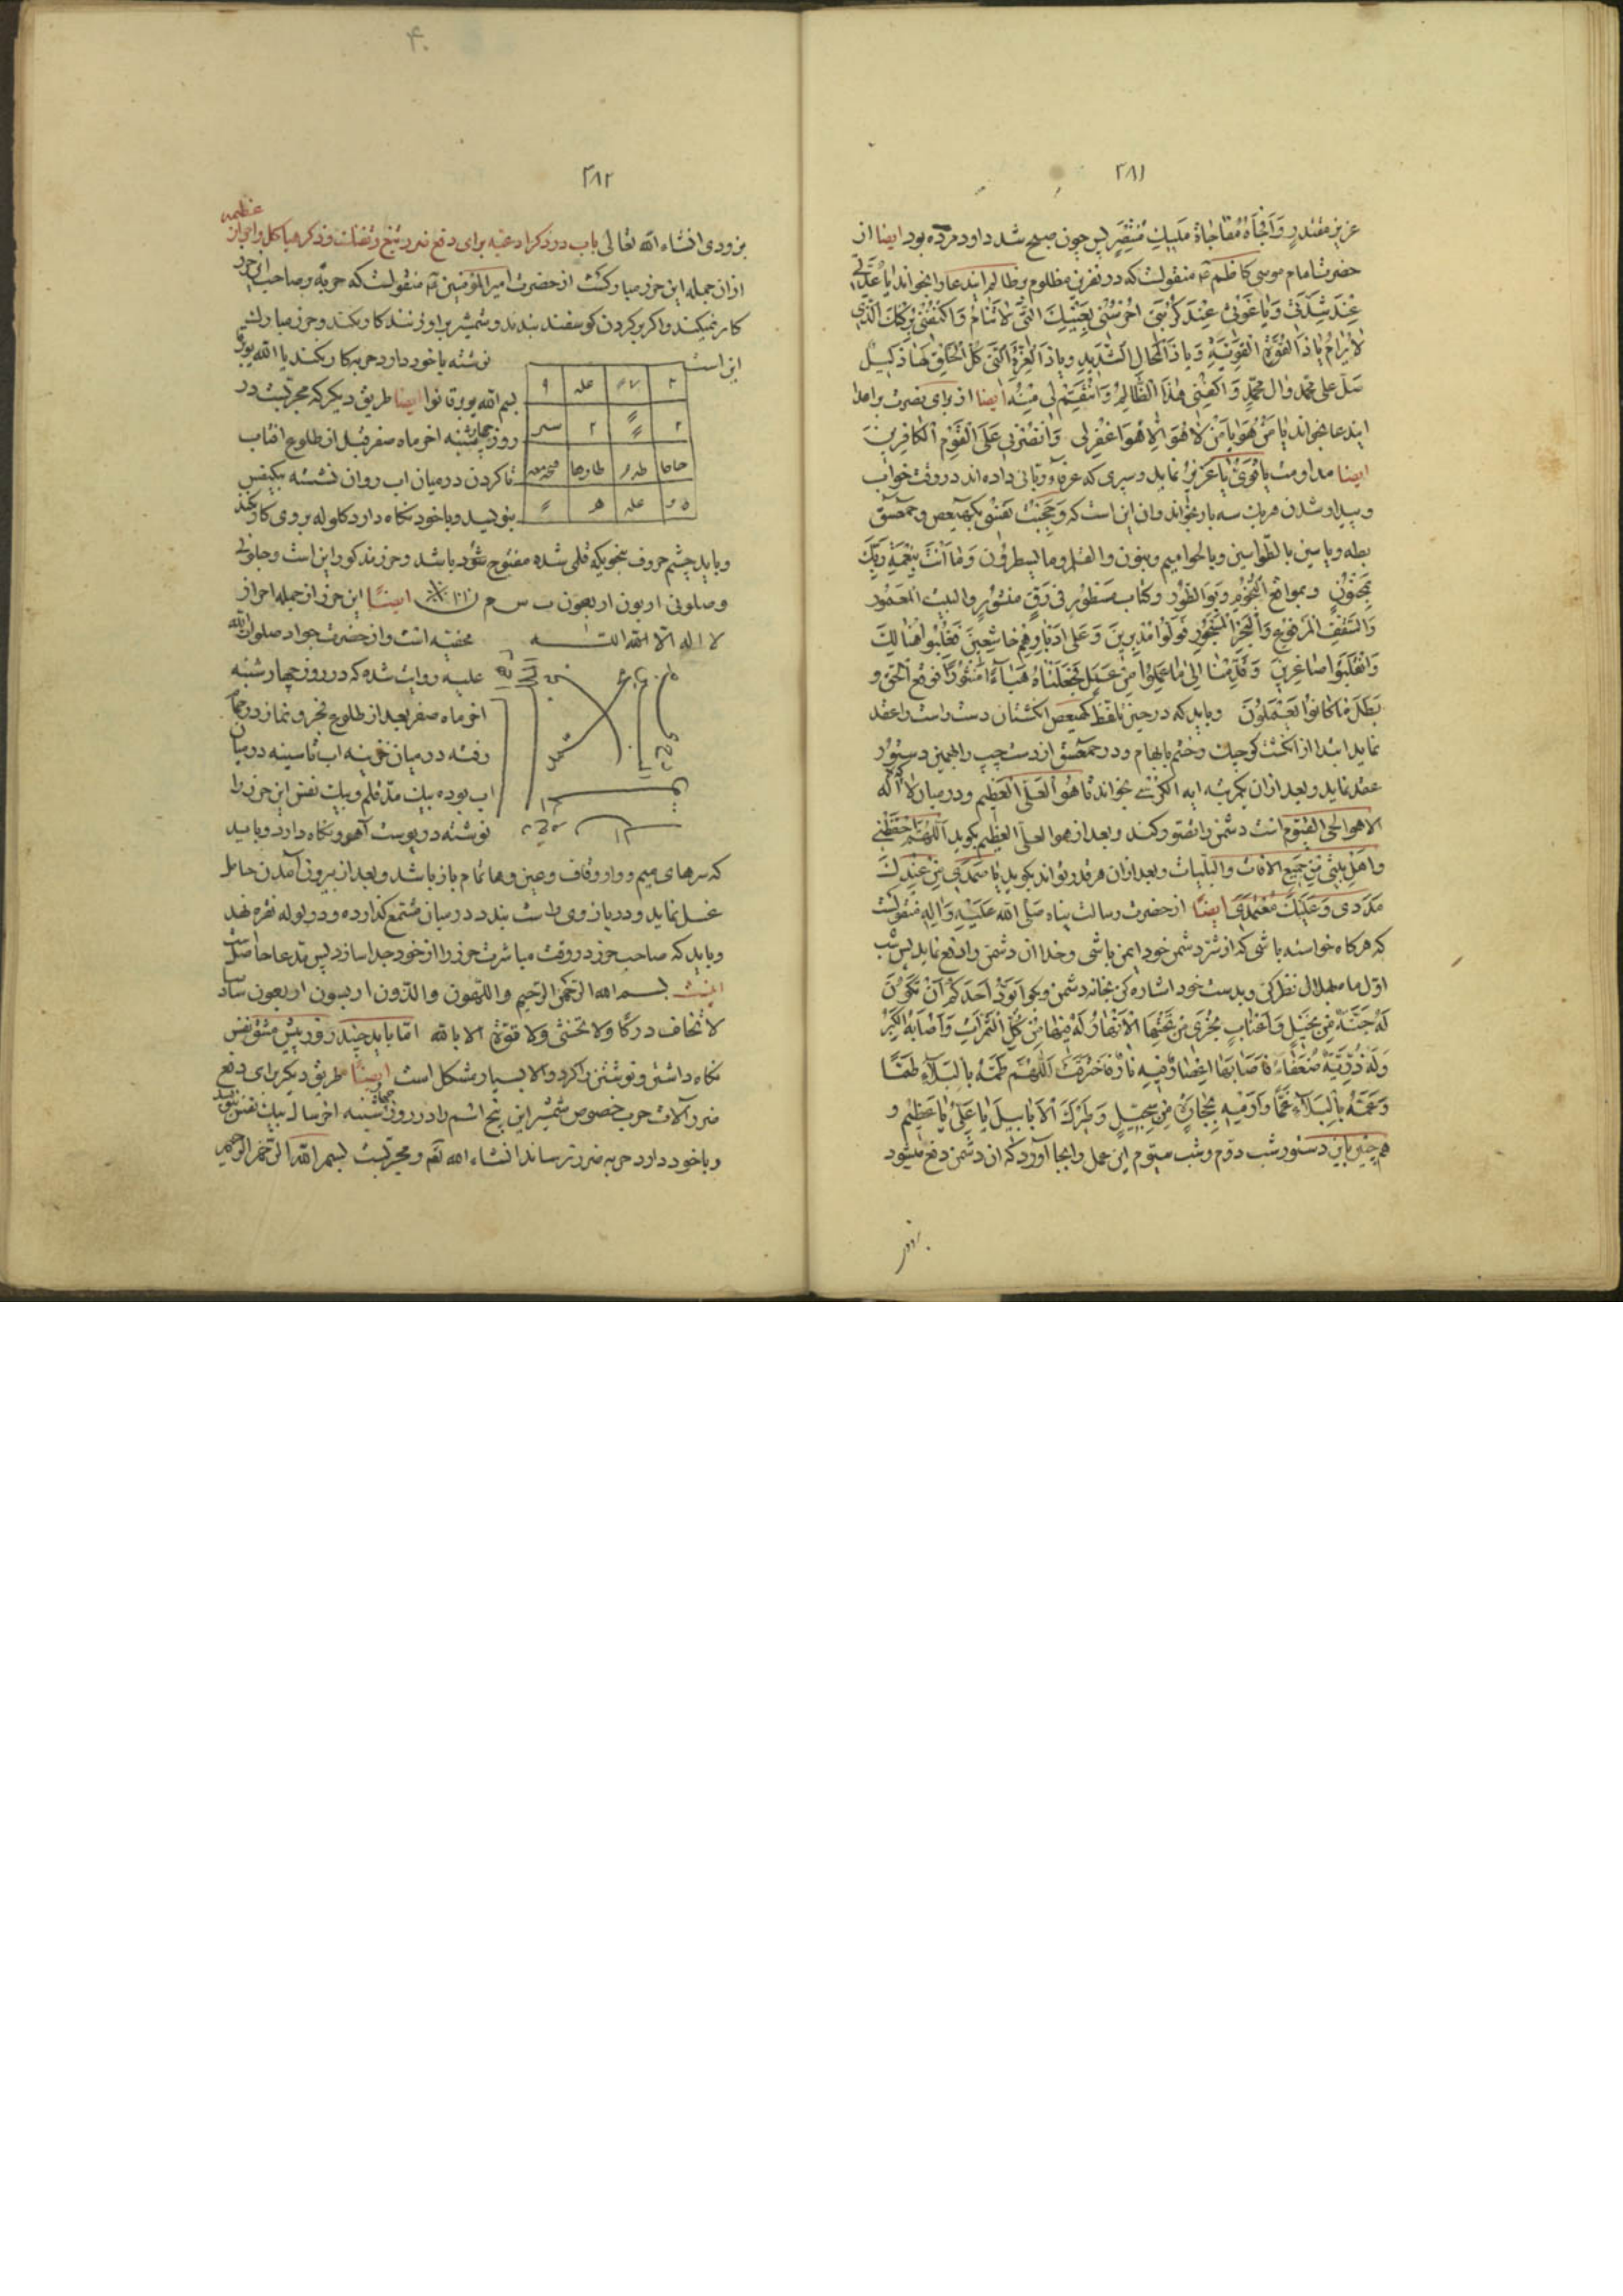 ٢٨١
عزیز مقتدر وافجأه مفاجاة ملیك منتصر پس چون صبح شد داود مرده بود ایضا از
حضرت امام موسی کاظم منقولست که در نفرین مظلوم بر ظالم ایندعا را بخواند یا عدتی
عند شدتی ویا غوثی عند کربتی احرسنی بعینك التی لا تنام واکنفنی برکنك الذی
لا یرام یا ذا القوة القویة ویا ذا المحال الشدید ویا ذا العزة التی کل خلقك لها ذلیل
صل علی محمد وال محمد واکفنی هذا الظالم وانتقم لی منه ایضا از برای نصرت بر اعدا
ایندعا بخواند یا من هو یا من لا هو الا هو اغفر لی وانصرنی علی القوم الکافرین
ایضا مداومت یا قوی یا عزیز نماید وسپری که عرفاء ربانی داده اند در وقت خواب
وبیدار شدن هریك سه بار بخواند وان این است که وحجبت نفسی بکهیعص وحمعسق
بطه ویاسین بالطواسین وبالحوامیم وبنون والقلم وما یسطرون وما انت بنعمة ربك
بمجنون وبمواقع النجوم وبوالطور وکتاب مسطور فی رق منشور والبیت المعمور
والسقف المرفوع والبحر المسجور فولوا مدبرین وعلی ادبارهم خاشعین فغلبوا هنالك
وانقلبوا صاغرین وقدمنا الی ما عملوا من عمل فجعلناه هباء منثورا فوقع الحق و
بطل ما کانوا یعملون وباید که در حین تلفظ کهیعص انکشتان دست راست را عقد
نماید ابتدا از انکشت کوچك وختم بابهام ودر حمعسق از دست چپ را بهمین دستور
عقد نماید وبعد ازان یکمرتبه ایه الکرسی بخواند تا هو العلی العظیم ودر میان لا اله
الا هو الحی القیوم انت دشمن را تصور کند وبعد از هو العلی العظیم بکوید اللهم احفظنی
واهل بیتی من جمیع الافات والبلیات وبعد ازان هر قدر تواند بکوید یا صمدی من عندك
مددی وعلیك معتمدی ایضا از حضرت رسالت پناه صلی الله علیه واله منقولست
که هرکاه خواسته باشی که از شر دشمن خود ایمن باشی وخدا ان دشمن را دفع نماید پس شب
اول ماه بهلال نظر کن وبدست خود اشاره کن بخانه دشمن وبکو ایود احدکم ان تکون
له جنة من نخیل واعناب تجری من تحتها الانهار له فیها من کل الثمرات واصابه الکبر
وله ذریة ضعفاء فاصابها اعصار فیه نار فاحترقت اللهم طمه بالبلاء طما
وعمه بالبلاء عما وارمه بحجارة من سجیل وطیرك الابابیل یا علی یا عظیم و
همچنین باین دستور شب دوم وشب سیوم این عمل را بجا آورد که ان دشمن دفع میشود
بزودی
٢٨٢
بزودی انشاء الله تعالی باب در ذکر ادعیه برای دفع ضرر تیغ وتفنك وذکر هیاکل واحراز عظیمه
ازان جمله این حرز مبارکست از حضرت امیر المؤمنین منقولست که حربه بر صاحب این حرز
کار نمیکند واکر بر کردن کوسفند بندند وشمشیر بر او زنند کار نکند وحرز مبارك
این است
نوشته با خود دارد حربه کار نکند یا الله
بسم الله ایضا طریق دیکر که مجربست در
روز چهارشنبه اخر ماه صفر قبل از طلوع افتاب
تا کردن در میان اب روان نشسته بیکنفس
بنویسد وبا خود نکاه دارد کلوله بر وی کار نکند
وباید چشم حروف بنحویکه قلمی شده مفتوح باشد وحرز مذکور این است
ایضا این حرز از جمله احراز
لا اله الا الله
مخفیه است واز حضرت جواد صلوات الله
علیه روایت شده که در روز چهارشنبه
اخر ماه صفر بعد از طلوع فجر ونماز
رفته در میان خزینه اب تا سینه در میان
اب بوده بیك مد قلم وبیك نفس این حرز را
نوشته در پوست آهو ونکاه دارد وباید
که سرهای میم وواو وقاف وعین وها تمام باز باشد وبعد از بیرون آمدن حامل
غسل نماید ودر بازوی راست بندد در میان مشمع کذارده ودر لوله نقره نهد
وباید که صاحب حرز در وقت مباشرت حرز را از خود جدا سازد پس مدعا حاصل است
اینست بسم الله الرحمن الرحیم
لا تخاف درکا ولا تخشی ولا قوة الا بالله اما باید چند روز پیش مشق نفس
نکاه داشتن ونوشتن را کرد والا بسیار مشکل است ایضا طریق دیکر برای دفع
ضرر آلات حرب خصوص شمشیر این پنج اسم را در روز چهارشنبه اخر سال بیك نفس بنویسد
وبا خود دارد حربه ضرر نرساند انشاء الله ومجربست بسم الله الرحمن الرحیم